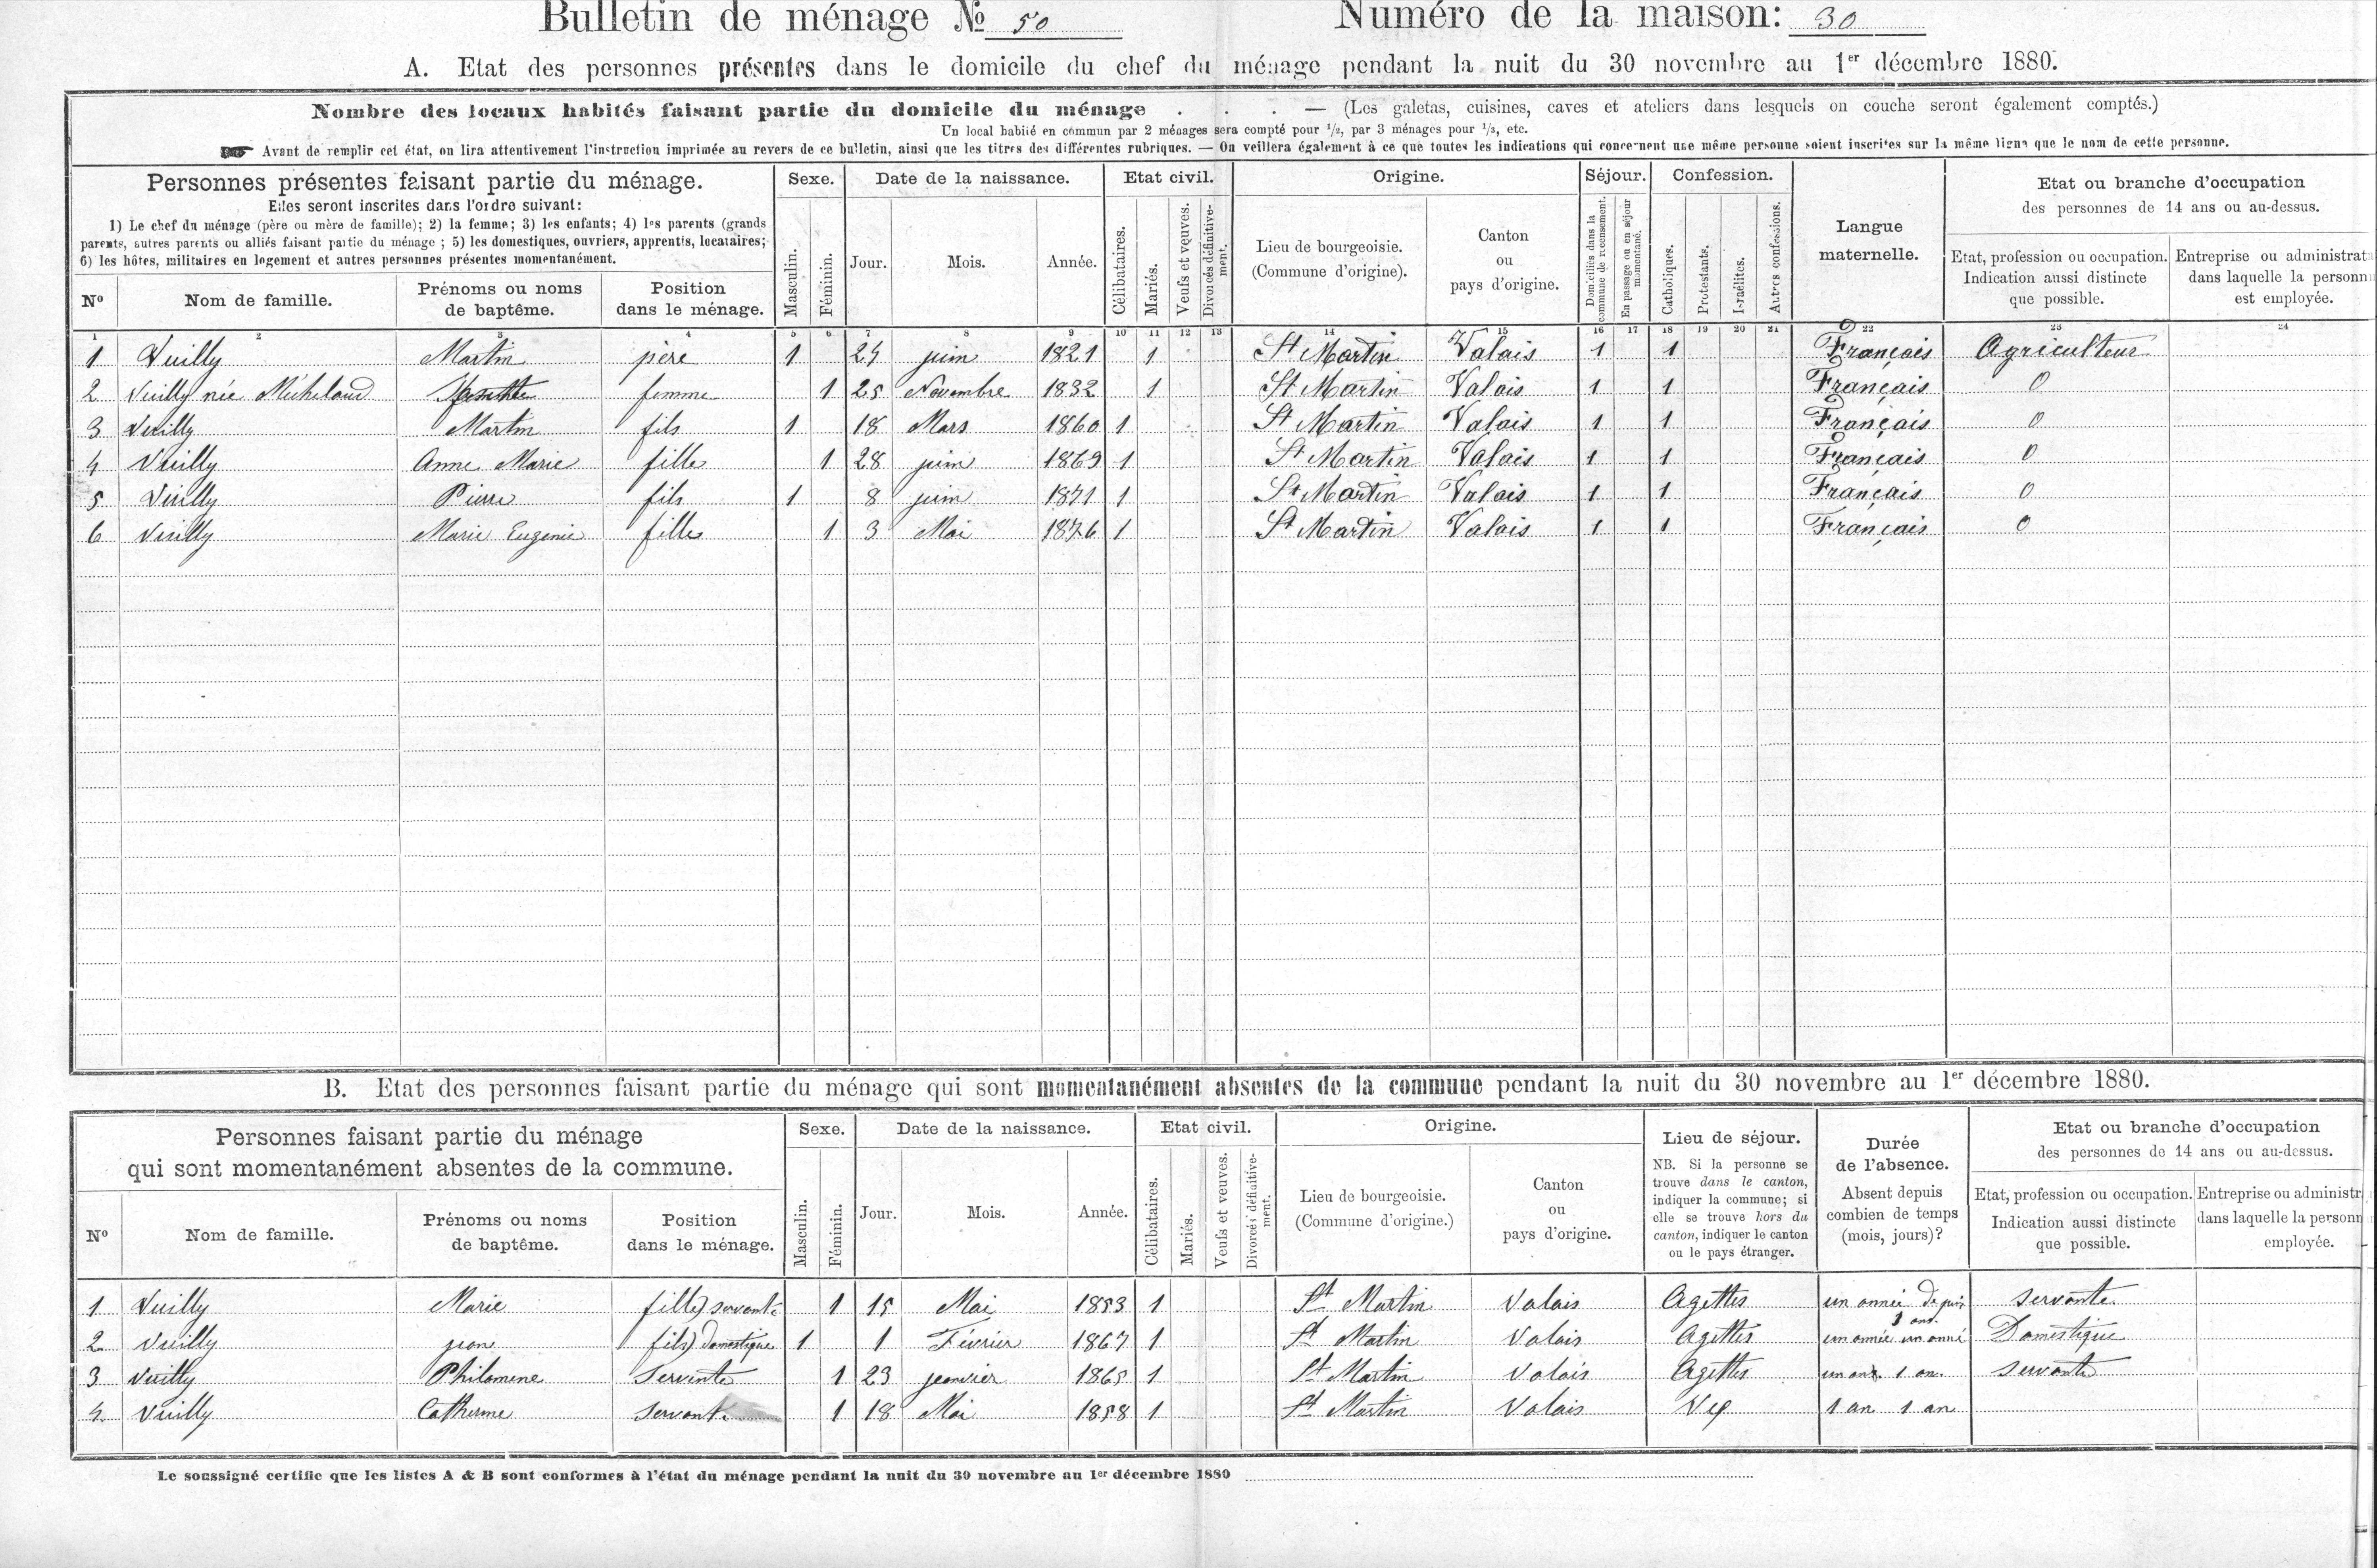 Bulletin de ménage № 50 Numéro de la maison: 30
A. Etat des personnes présentes dans le domicile du chef du ménage pendant la nuit du 30 novembre au 1er décembre 1880.
Nombre des locaux habités faisant partie du domicile du ménage . . . — (Les galetas, cuisines, caves et ateliers dans lesquels on couche seront également comptés.)
Un local habité en commun par 2 ménages sera compté pour 1/2, par 3 ménages pour 1/3, etc.
Avant de remplir cet état, on lira attentivement l'instruction imprimée au revers de ce bulletin, ainsi que les titres des différentes rubriques. — On veillera également à ce que toutes les indications qui concernent une même personne soient inscrites sur la même ligne que le nom de cette personne.
Personnes présentes faisant partie du ménage.
Elles seront inscrites dans l'ordre suivant:
1) Le chef du ménage (père ou mère de famille); 2) la femme; 3) les enfants; 4) les parents (grands
parents, autres parents ou alliés faisant partie du ménage ; 5) les domestiques, ouvriers, apprentis, locataires;
6) les hôtes, militaires en logement et autres personnes présentes momentanément.
No Nom de famille. Prénoms ou noms
de baptême.
Position
dans le ménage.
Sexe.
Masculin. Féminin.
Date de la naissance.
Jour. Mois. Année.
Etat civil.
Célibataires. Mariés. Veufs et veuves. Divorcés définitive-
ment.
Origine.
Lieu de bourgeoisie.
(Commune d'origine).
Canton
ou
pays d'origine.
Séjour.
Domiciliés dans la
commune de recensement.
En passage ou en séjour
momentané.
Confession.
Catholiques. Protestants. Israélites. Autres confessions.
Langue
maternelle.
Etat ou branche d'occupation
des personnes de 14 ans ou au-dessus.
Etat, profession ou occupation.
Indication aussi distincte
que possible.
Entreprise ou administrat
dans laquelle la personn
est employée.
1 2 3 4 5 6 7 8 9 10 11 12 13 14 15 16 17 18 19 20 21 22 23 24
1 Vuilly Martin père 1 24 juin 1821 1 St Martin Valais 1 1 Français Agriculteur
2 Vuilly née Micheloud femme 1 25 Novembre 1832 1 St Martin Valais 1 1 Français 0
3 Vuilly Martin fils 1 18 Mars 1860 1 St Martin Valais 1 1 Français 0
4 Vuilly Anne Marie fille 1 28 juin 1869 1 St Martin Valais 1 1 Français 0
5 Vuilly Pierre fils 1 8 juin 1871 1 St Martin Valais 1 1 Français 0
6 Vuilly Marie Eugenie fille 1 3 Mai 1876 1 St Martin Valais 1 1 Français 0
B. Etat des personnes faisant partie du ménage qui sont momentanément absentes de la commune pendant la nuit du 30 novembre au 1er décembre 1880.
Personnes faisant partie du ménage
qui sont momentanément absentes de la commune.
No Nom de famille. Prénoms ou noms
de baptême.
Position
dans le ménage.
Sexe.
Masculin. Féminin.
Date de la naissance.
Jour. Mois. Année.
Etat civil.
Célibataires. Mariés. Veufs et veuves. Divorcés définitive-
ment.
Origine.
Lieu de bourgeoisie.
(Commune d'origine.)
Canton
ou
pays d'origine.
Lieu de séjour.
NB. Si la personne se
trouve dans le canton,
indiquer la commune; si
elle se trouve hors du
canton, indiquer le canton
ou le pays étranger.
Durée
de l'absence.
Absent depuis
combien de temps
(mois, jours)?
Etat ou branche d'occupation
des personnes de 14 ans ou au-dessus.
Etat, profession ou occupation.
Indication aussi distincte
que possible.
Entreprise ou administr
dans laquelle la personn
employée.
1 Vuilly Marie fille) servante 1 15 Mai 1853 1 St Martin Valais Agettes un année Depuis servante
2 Vuilly jean fils) Domestique 1 1 Février 1867 1 St Martin Valais Agettes un année un anné Domestique
3 Vuilly Philomene Servinte 1 23 jeanvier 1865 1 St Martin Valais Agettes un an 1 an. servante
4 Vuilly Catherine Servante 1 18 Mai 1858 1 St Martin Valais Vex 1 an 1 an
Le soussigné certifie que les listes A & B sont conformes à l'état du ménage pendant la nuit du 30 novembre au 1er décembre 1880